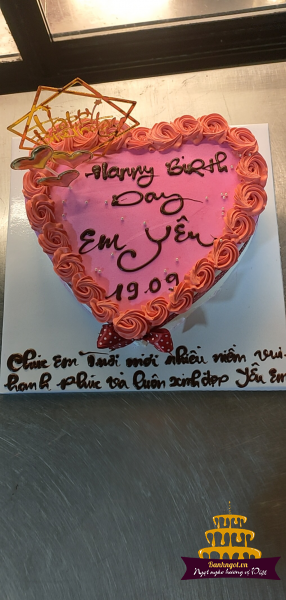 Happy Birth
Day
Em Yêu
19.09
Chúc Em Tuổi mới nhiều niềm vui
hạnh phúc và luôn xinh đẹp Yêu Em
Banhngot.vn
Ngọt ngào hương vị Việt